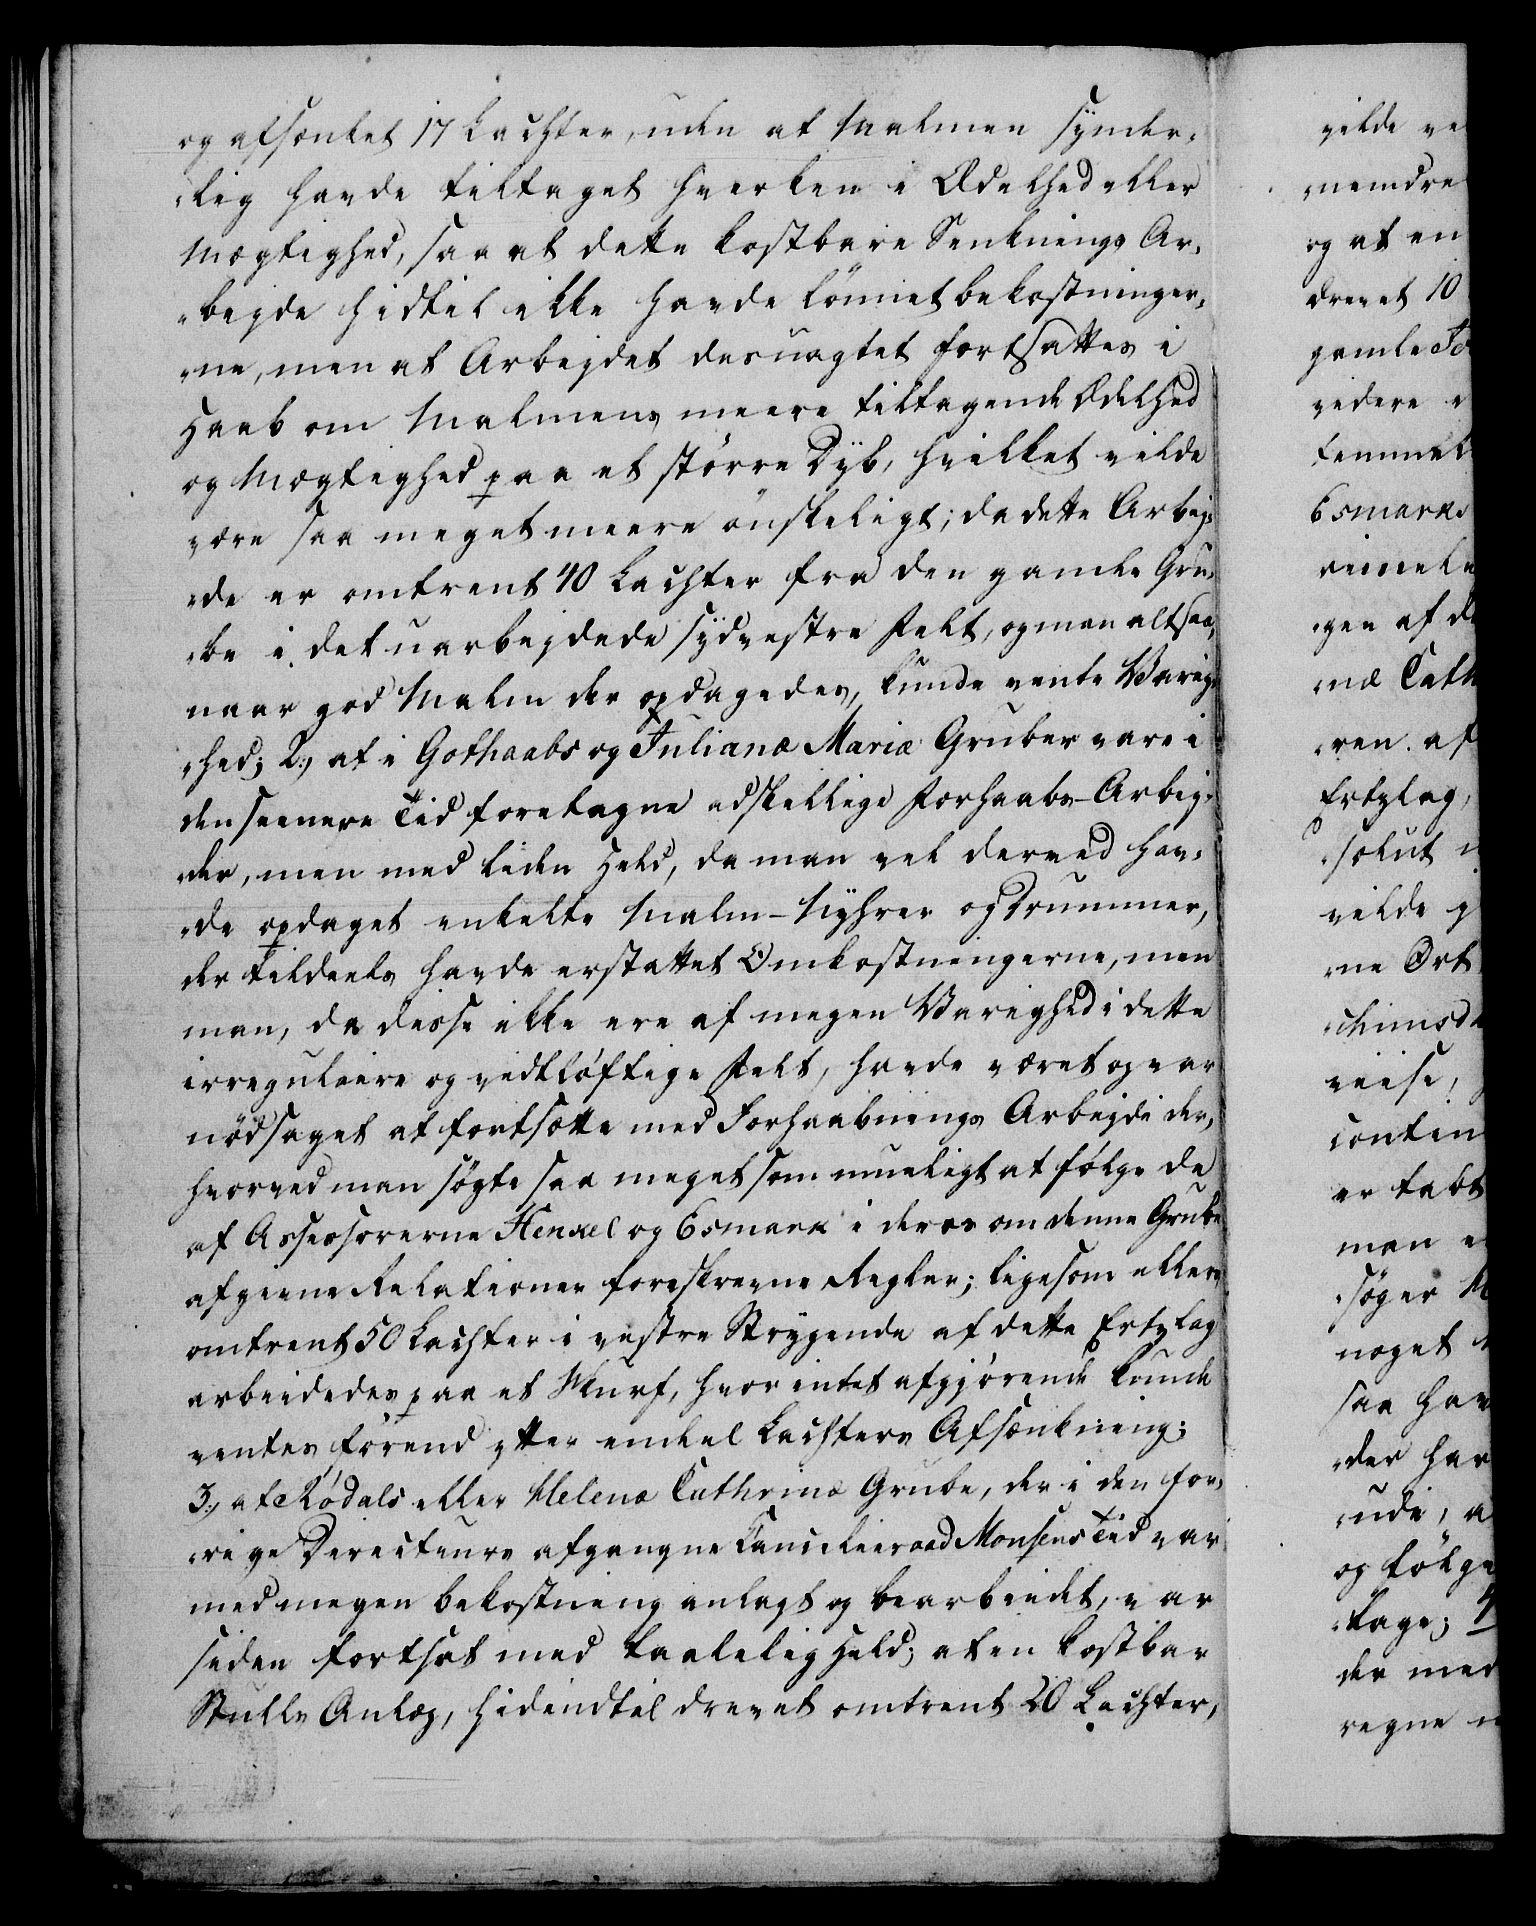 og afsænket 17 Lachter, uden at Malmen synder-
-lig havde tiltaget hverken i Ædelhed eller
Mægtighed, saa at dette kostbare Senknings Ar-
-bejde hidtil ikke havde lönnet bekostninger-
-ne, men at Arbejdet desuagtet fortsattes i
Haab om Malmens meere tiltagende Ædelhed
og Mægtighed paa et större Dyb, hvilket vilde
være saa meget meere önskeligt; da dette Arbej-
-de er omtrent 40 Lachter fra den gamle Gru-
-be i det uarbejdede sydvestre Felt, og man altsaa,
naar god Malm der opdagedes, kunde vente Varig-
-hed; 2:, at i Gothaabs og Julianæ Mariæ Gruber vare i
den seenere Tid foretagne adskillige Forhaabs-Arbej-
-der, men med liden Held, da man vel derved hav-
-de opdaget enkelte Malm-Nyhrer og Drummer,
der tildeels havde erstattet Omkostningerne, men
man, da disse ikke ere af megen Varighed i dette
irregulaire og vidtløftige Felt, havde været og var
nödsaget at fortsætte med Forhaabnings Arbejde der,
hvorved man sögte saa meget som mueligt at følge de
af Assessorerne Henkel og Esmark i deres om denne Grube
afgivne Relationer foreskrevne Regler; ligesom ellers
omtrent 50 Lachter i vestre Strygende af dette Ertzlag
arbeidedes paa et Skurf, hvor intet afgjörende kunde
ventes förend efter endeel Lachters Afsænkning;
3:, at Rødals eller Helenæ Cathrinæ Grube, der i den for-
-rige Directeurs afgangne Cancelieraad Monsens Tid var
med megen bekostning anlagt og bearbeidet, var
siden fortsat med taalelig Held; at en kostbar
Stolls Anlæg, hidindtil drevet omtrent 20 Lachter,
vilde ve
-mindre
og at en
drevet 10
gamle
videre
Esmark
-gen af
-næ Cath
-ren. af
Ertzlag,
-solut
vilde
-ne Ort
viise,
conten
er tabt
man
-söger
noget
saa hav
-der har
-udi, a
og følge
-tage; 4
der med
regne